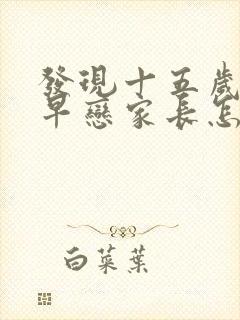 發現十五歲
早戀家長怎
白菜葉